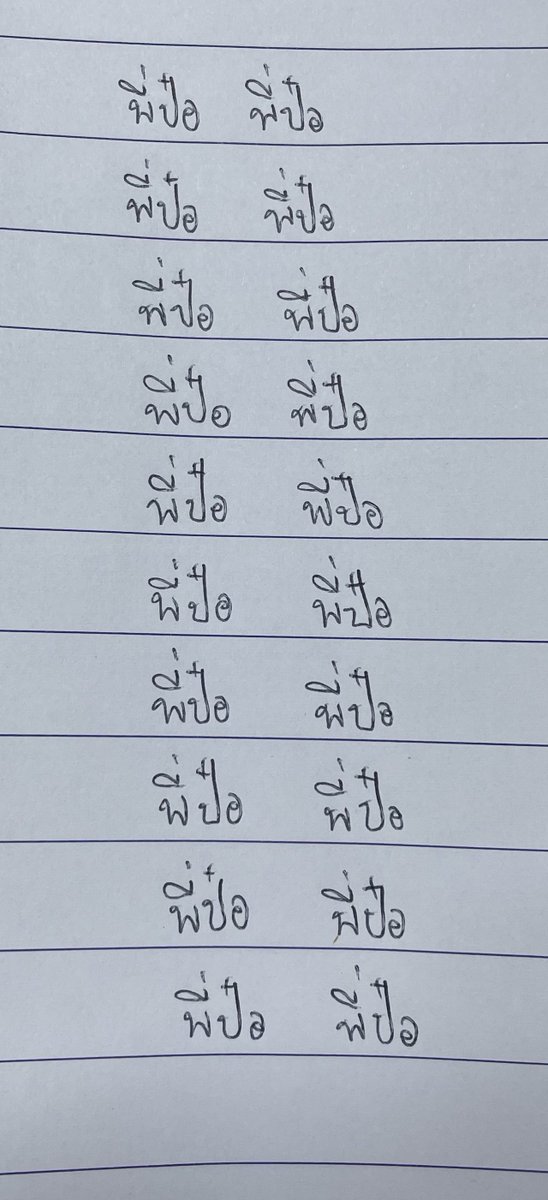 พี่ป๋อ พี่ป๋อ
พี่ป๋อ พี่ป๋อ
พี่ป๋อ พี่ป๋อ
พี่ป๋อ พี่ป๋อ
พี่ป๋อ พี่ป๋อ
พี่ป๋อ พี่ป๋อ
พี่ป๋อ พี่ป๋อ
พี่ป๋อ พี่ป๋อ
พี่ป๋อ พี่ป๋อ
พี่ป๋อ พี่ป๋อ